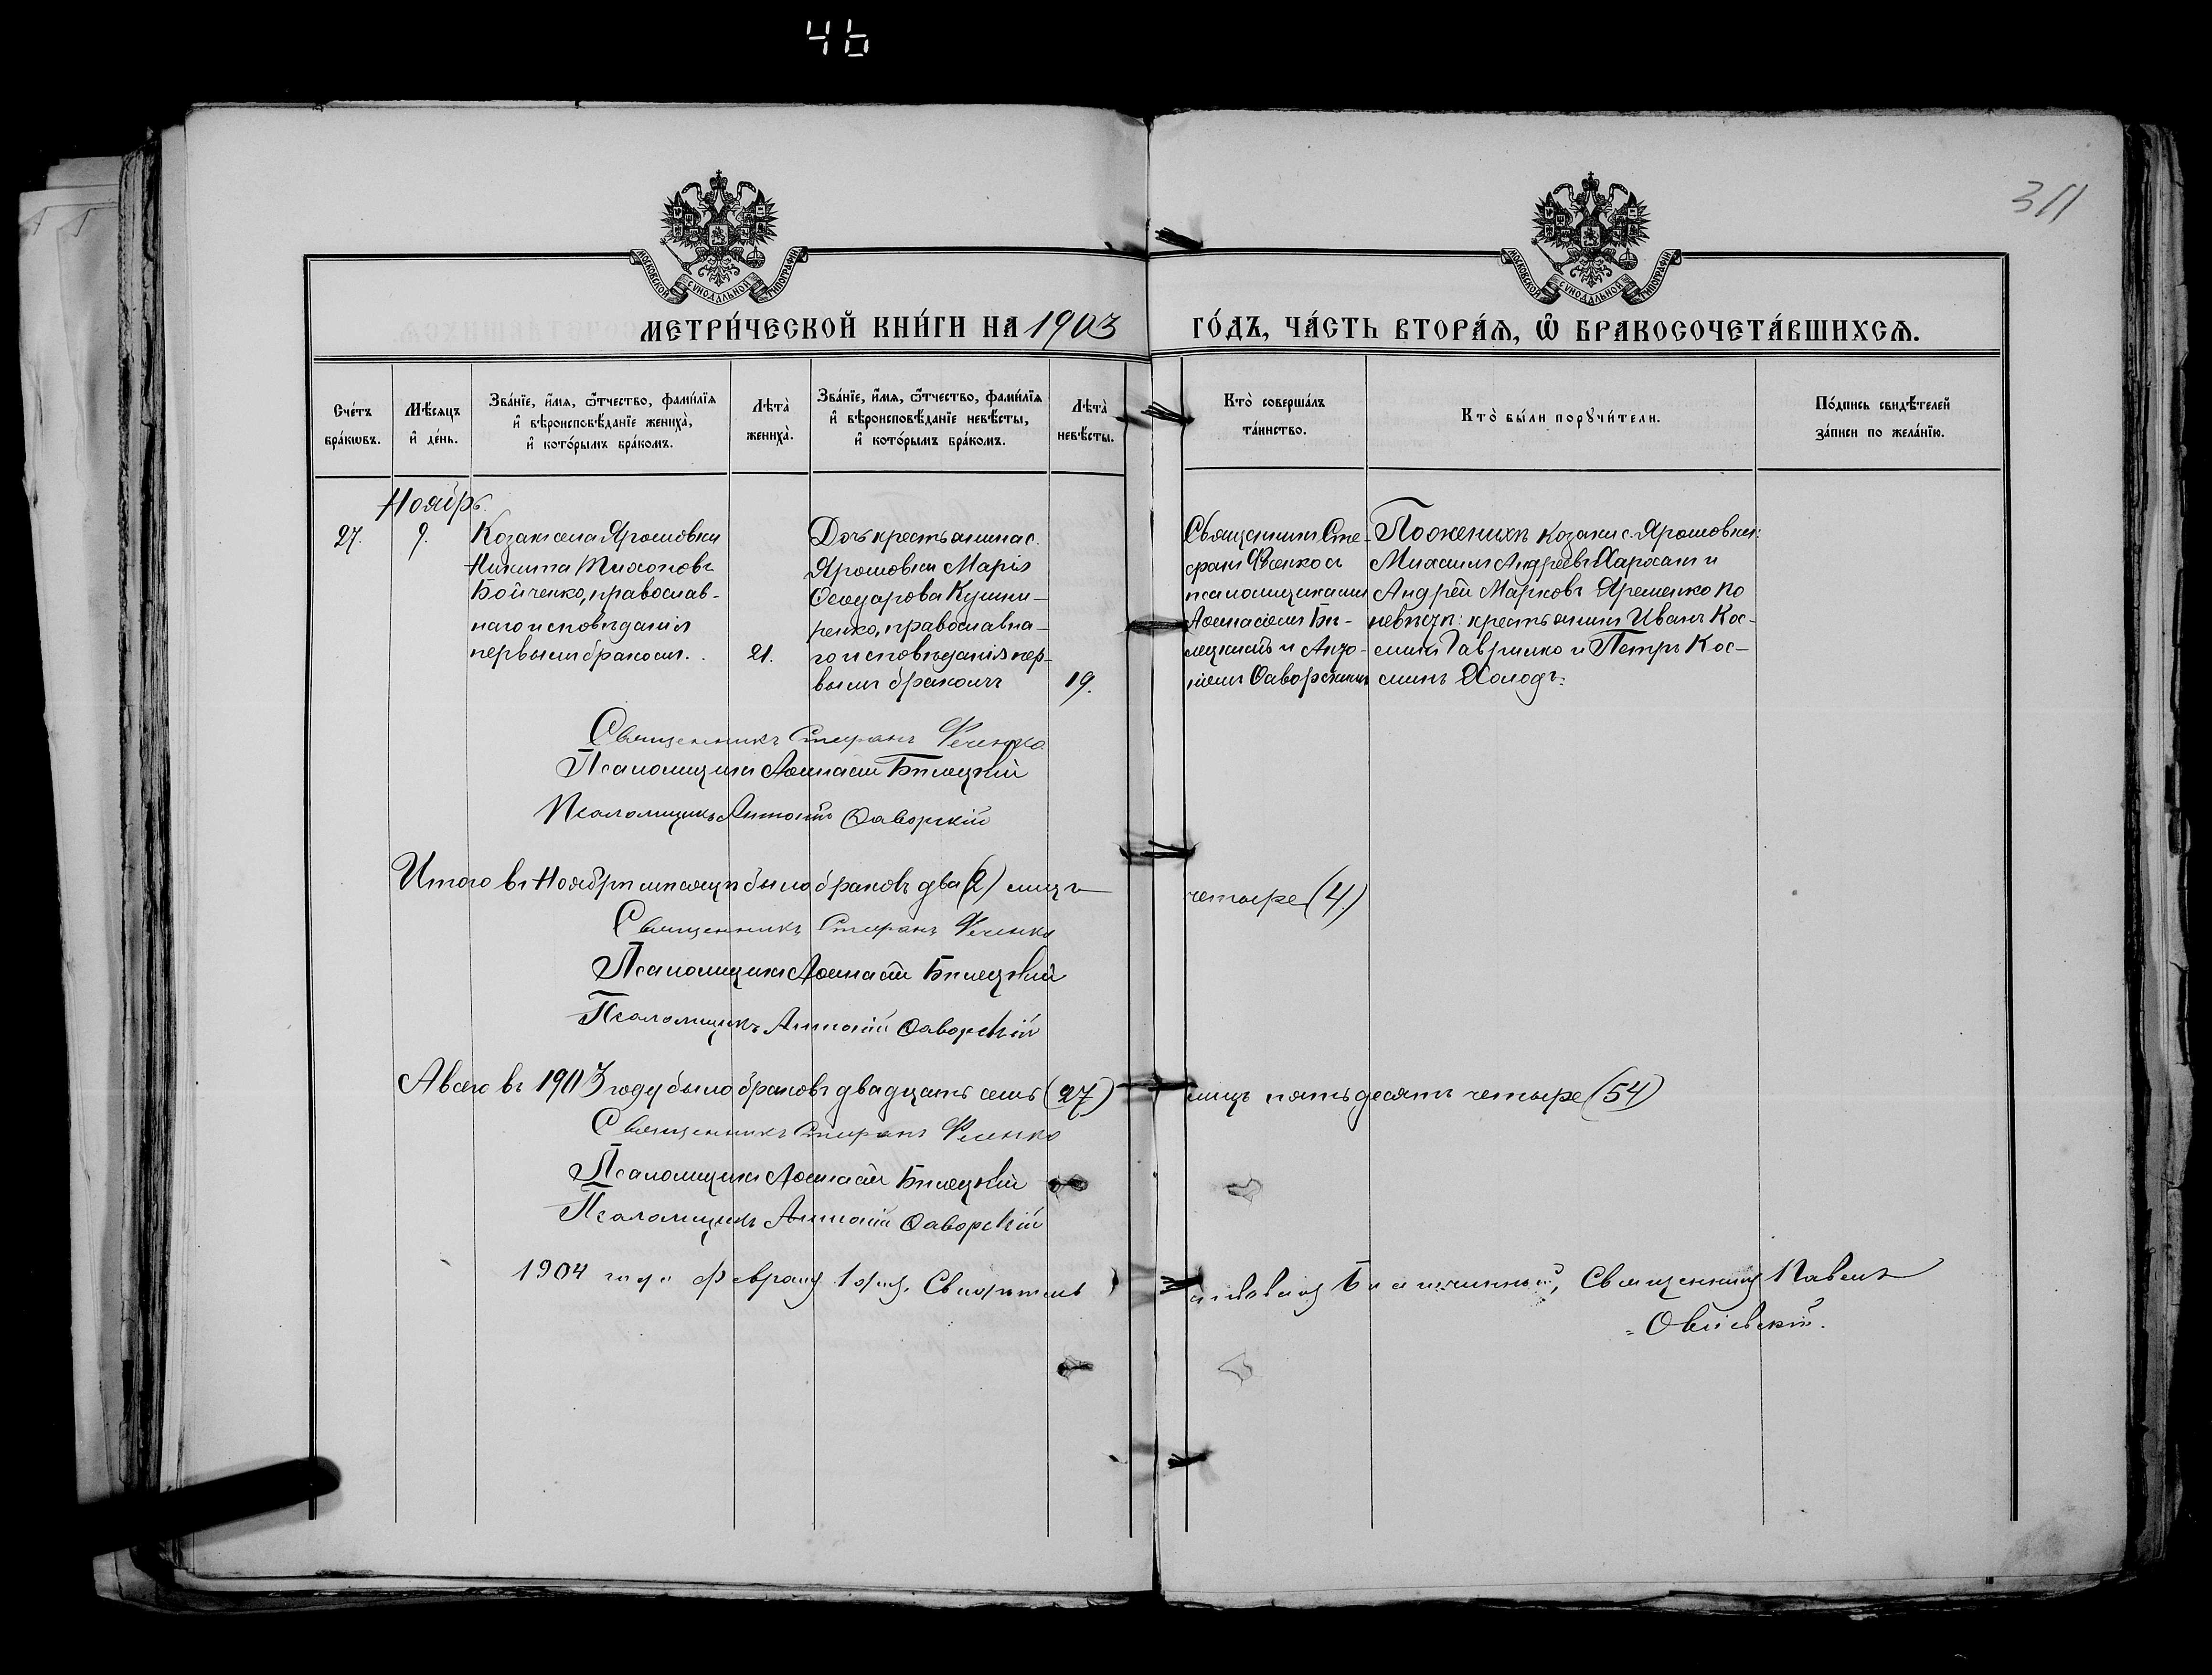 46
311
МОСКОВСКОЙ СУНОДАЛЬНОЙ ТИПОГРАФІИ
МОСКОВСКОЙ СУНОДАЛЬНОЙ ТИПОГРАФІИ
МЕТРИ́ЧЕСКОЙ КНИ́ГИ НА 1903 ГО́ДЪ, ЧА́СТЬ ВТОРА́Ѧ, Ѽ БРАКОСОЧЕТА́ВШИХСѦ.
Сче́тъ
бра́кѡвъ.
Мѣ́сяцъ
и҆ де́нь.
Зва́нїе, и҆́мѧ, ѻ҆́тчество, фами́лїѧ
и҆ вѣроисповѣ́данїе жениха̀,
и҆ кото́рымъ бра́комъ.
Лѣта̀
жениха̀.
Зва́нїе, и҆́мѧ, ѻ҆́тчество, фами́лїѧ
и҆ вѣроисповѣ́данїе невѣ́сты,
и҆ кото́рымъ бра́комъ.
Лѣта̀
невѣ́сты.
Кто̀ соверша́лъ
та́инство.
Кто̀ бы́ли порꙋчи́тели.
По́дпись свидѣ́телей
за́писи по жела́нїю.
Ноябрь.
27.
9.
Козакъ села Ярошовки
Никита Тихоновъ
Бойченко, православ-
наго исповѣданія
первымъ бракомъ.
21.
Дочь крестьянина с.
Ярошовки Марія
Ѳеодорова Кушни-
ренко, православна-
го исповѣданія пер-
вымъ бракомъ
19.
Священникъ Сте-
фанъ съ
псаломщиками
Аѳанасіемъ Би-
лецкимъ и Анто-
ніемъ Ѳаворскимъ
По женихѣ козаки с. Ярошовки:
Михаилъ Андреевъ и
Андрей Марковъ Яременко по
невѣстѣ: крестьяне Иванъ Кос-
минъ Гавришко и Петръ Кос-
минъ Холодъ.
Священникъ Стефанъ
Псаломщикъ Аѳанасій Билецкій
Псаломщикъ Антоній Ѳаворскій
Итого въ Ноябрѣ мѣсяцѣ было браковъ два (2) лицъ четыре (4.)
Священникъ Стефанъ
Псаломщикъ Аѳанасій Билецкій
Псаломщикъ Антоній Ѳаворскій
А всего въ 1903 году было браковъ двадцать семь (27) лицъ пятьдесятъ четыре (54)
Священникъ Стефанъ
Псаломщикъ Аѳанасій Билецкій
Псаломщикъ Антоній Ѳаворскій
1904 года Февраля 1 дня. Благочинный, Священникъ Павелъ